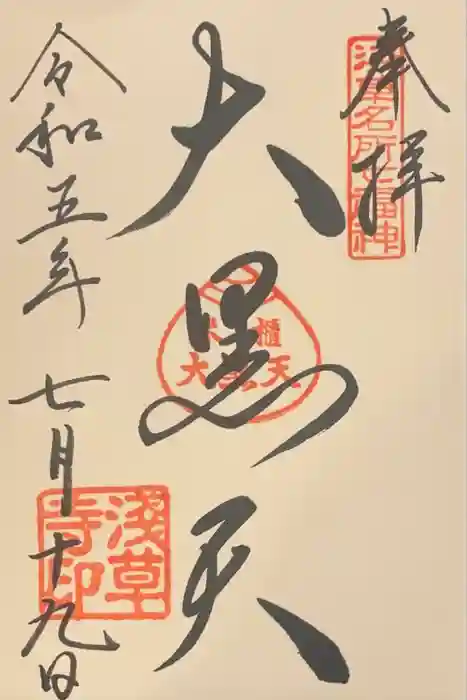 奉拝
浅草名所七福神
大黒天
米櫃
大黒天
令和五年七月十九日
浅草寺印